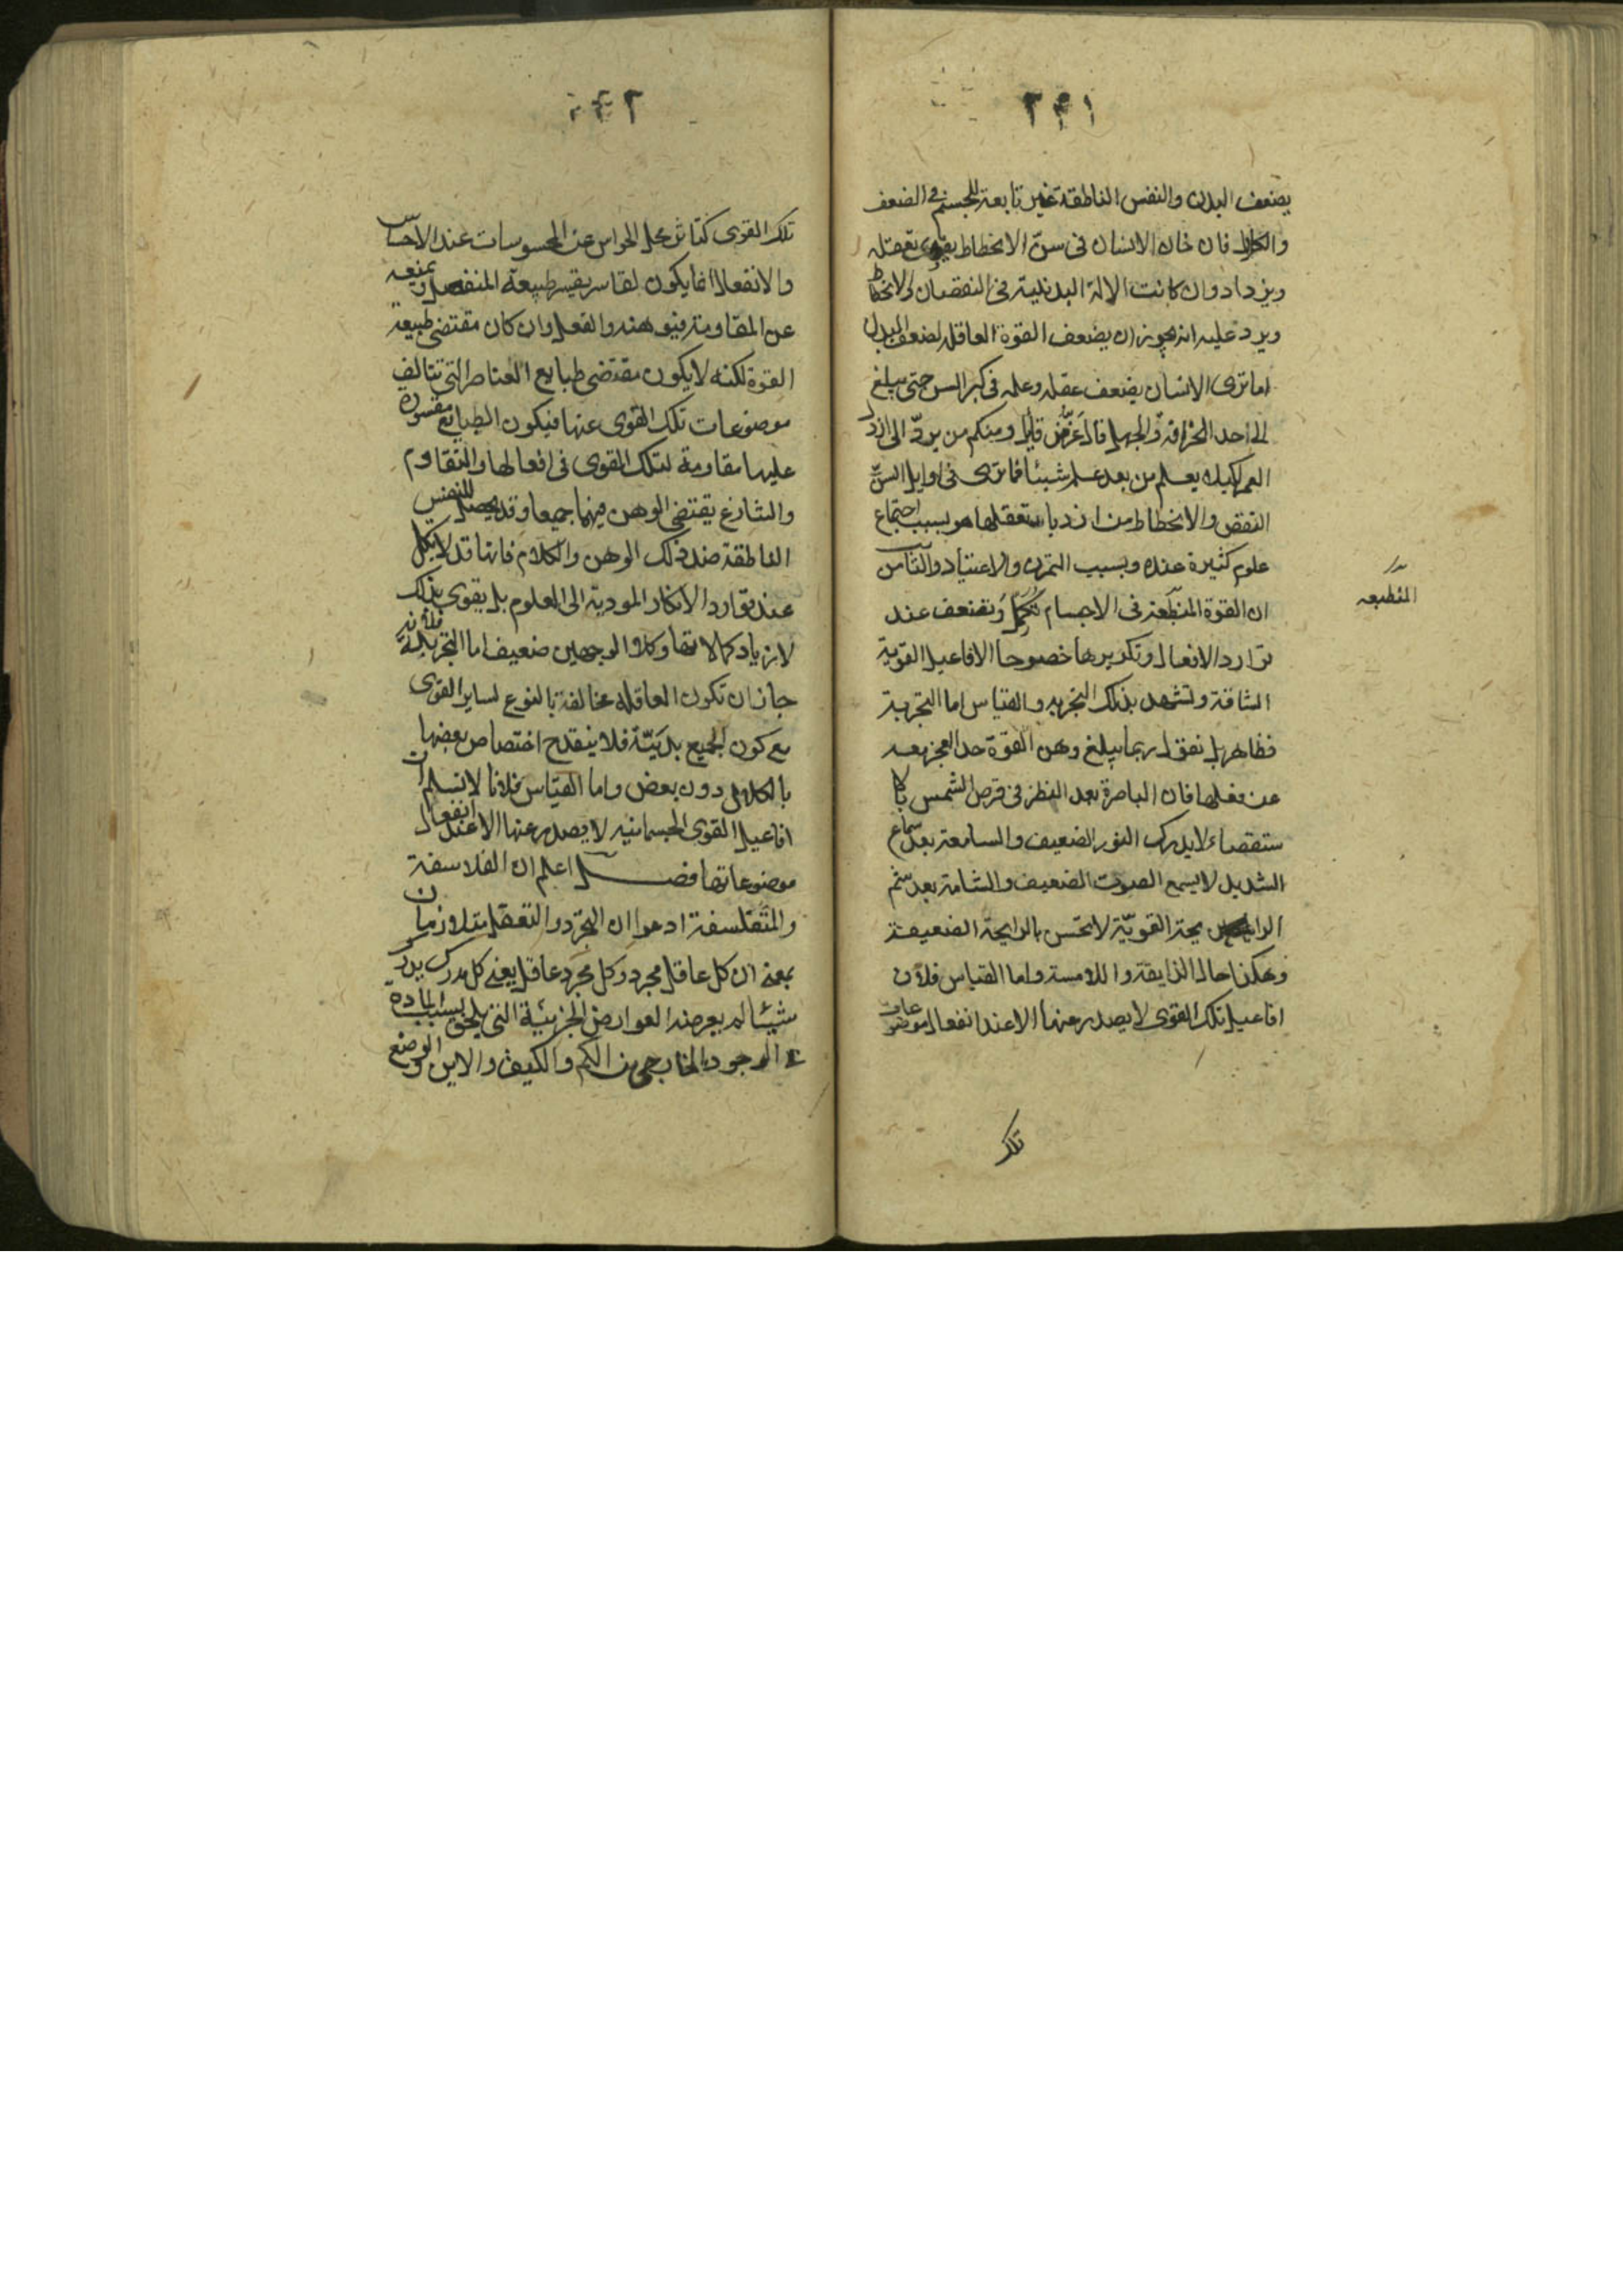 ٢٤١
يضعف البدن والنفس الناطقة غير تابعة للجسم في الضعف
والكلال فان الانسان في سن الانحطاط يقوى تعقله
ويزداد وان كانت الالة البدنية في النقصان والانحطاط
ويرد عليه انه يجوز ان يضعف القوة العاقلة لضعف البدن
اما ترى الانسان يضعف عقله وعلمه في كبر السن حتى يبلغ
الى احد الخرافة والجهل قال عز من قايل ومنكم من يرد الى ارذل
العمر لكيلا يعلم من بعد علم شيئا فما ترى في اوايل السن
النقص والانحطاط من ازدياد تعقلها هو بسبب اجتماع
علوم كثيرة عنده وبسبب التمرن والاعتياد والثامن
ان القوة المنطبعة في الاجسام تكل وتضعف عند
توارد الافعال وتكريرها خصوصا الافاعيل القوية
الشاقة وتشهد بذلك التجربه والقياس اما التجربة
فظاهر بل نقول ربما يبلغ وهن القوة حد العجز بعد
عن فعلها فان الباصرة بعد النظر في قرص الشمس بالا
ستقصاء لا يدرك النور الضعيف والسامعة بعد سماع
الشديد لا يسمع الصوت الضعيف والشامة بعد شم
الرايحة القوية لا تحس بالرايحة الضعيفة
وهكذا حال الذايقة واللامسة واما القياس فلان
افاعيل تلك القوى لا يصدر عنها الا عند انفعال موضوعات
المنطبعه
تلك
٢٤٢
تلك القوى كتاثر محل الحواس عن المحسوسات عند الاحساس
والانفعال انما يكون لقاسر يقسر طبيعة المنفعل ويمنعه
عن المقاومة فيوهنه والفعل وان كان مقتضى طبيعة
القوة لكنه لا يكون مقتضى طبايع العناصر التي تتالف
موضوعات تلك القوى عنها فيكون الطبايع مقسورة
عليها مقاومة لتلك القوى في افعالها والتقاوم
والتنازع يقتضي الوهن فيهما جميعا وقد يحصل للنفس
الناطقة ضد ذلك الوهن والكلام فانها قد لا يكل
عند توارد الافكار المودية الى العلوم بل يقوى بذلك
لازدياد كمالاتها وكلا الوجهين ضعيف اما التجربة فلانه
جاز ان تكون العاقلة مخالفة بالنوع لساير القوى
مع كون الجميع بدنية فلا ينقدح اختصاص بعضها
بالكلال دون بعض واما القياس فلانا لا نسلم ان
افاعيل القوى الجسمانيه لا يصدر عنها الا عند انفعال
موضوعاتها فصل اعلم ان الفلاسفة
والمتفلسفة ادعوا ان التجرد والتعقل متلازمان
بمعنى ان كل عاقل مجرد وكل مجرد عاقل يعني كل مدرك يدرك
شيئا لم يعرضه العوارض الجزئية التي يلحق بسبب المادة
في الوجود الخارجي من الكم والكيف والاين والوضع